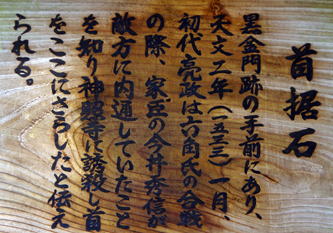 首据石
黒金門跡の手前にあり、
天文二年(一五三三)一月、
初代亮政は六角氏の合戦
の際、家臣の今井秀信が
敵方に内通していたこと
を知り神照寺に誘殺し首
をここにさらしたと伝え
られる。